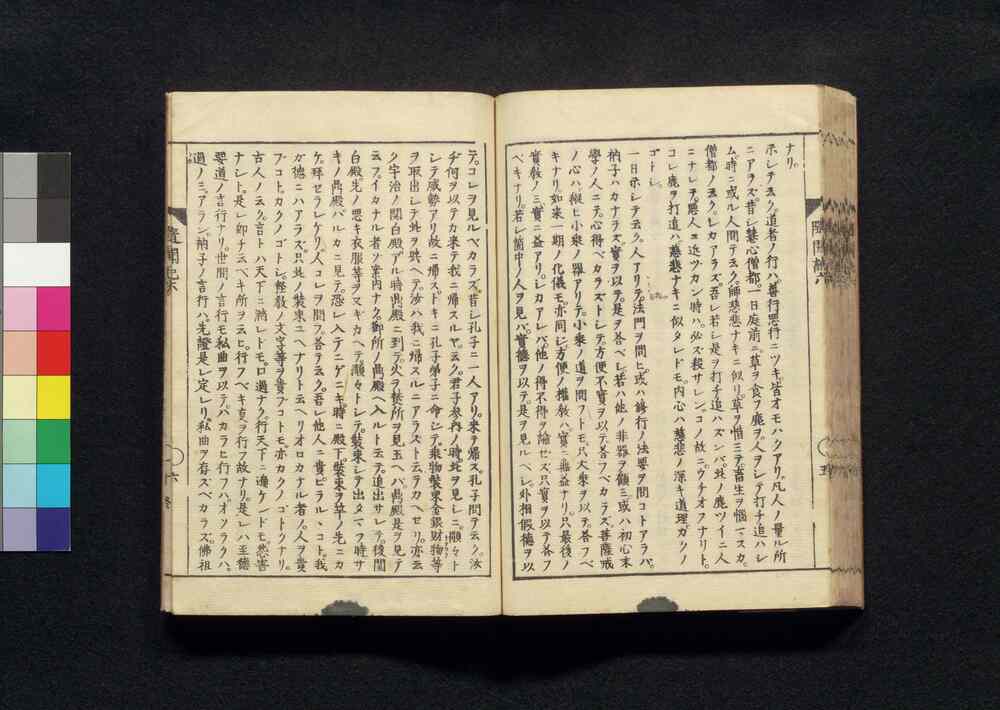 ナリ。
示シテ云ク、道者ノ行ハ善行悪行ニツキ皆オモハクアリ。凡人ノ量ル所
ニアラズ。昔シ慧心僧都、一日庭前ニ草ヲ食フ鹿ヲ、人ヲシテ打チ追ハシ
ム。時ニ或ル人問テ云ク、師慈悲ナキニ似リ。草ヲ惜ミテ畜生ヲ悩マスカ。
僧都ノ云ク、シカアラズ。吾レ若シ是ヲ打チ追ハズンバ、此ノ鹿ツイニ人
ニナレテ、悪人ニ近ヅカン時ハ必ズ殺サレン。コノ故ニウチオフナリト。
コレ鹿ヲ打追ハ慈悲ナキニ似タレドモ、内心ハ慈悲ノ深キ道理カクノ
ゴトシ。
一日示シテ云ク、人アリテ法門ヲ問ヒ或ハ修行ノ法要ヲ問コトアラバ、
衲子ハカナラズ實ヲ以テ是ヲ答ベシ。若ハ他ノ非器ヲ顧ミ、或ハ初心末
學ノ人ニテ心得ベカラズトシテ、方便不實ヲ以テ答フベカラズ。菩薩戒
ノ心ハ、縦ヒ小乘ノ器アリテ、小乘ノ道ヲ問フトモ、只大乘ヲ以テ答フベ
キナリ。如来一期ノ化儀モ亦同シ。方便ノ權教ハ實ニ無益ナリ。只最後ノ
實教ノミ實ニ益アリ。シカアレバ、他ノ得不得ヲ論セズ、只實ヲ以テ答フ
ベキナリ。若シ箇中ノ人ヲ見バ、實德ヲ以テ是ヲ見ルベシ。外相假德ヲ以
テ、コレヲ見ルベカラズ。昔シ孔子ニ一人アリ、来テ帰ス。孔子問テ云ク、汝
ヂ何ヲ以テカ来テ我ニ帰スルヤ。云ク、君子參内ノ時此ヲ見シニ、顒々ト
シテ威勢アリ、故ニ帰スト。キニ孔子弟子ニ命シテ、乘物裝束金銀財物等
ヲ取出シテ此ヲ與ヘテ、汝ハ我ニ帰スルニアラズト云テカヘセリ。亦云
ク、宇治ノ関白殿、アル時鼎殿ニ到テ火ヲ焚所ヲ見玉ヘバ、鼎殿是ヲ見テ
云フ、イカナル者ゾ、案内ナク御所ノ鼎殿ヘ入ルト云テ、追出サレテ後、関
白殿、先ノ悪キ衣服等ヲヌギカヘテ、顒々トシテ裝束シテ出タマフ時、サ
キノ鼎殿、ハルカニ見テ恐レ入テニゲニキ。時ニ殿下裝束ヲ竿ノ先ニカ
ケ、拜セラレケリ。人コレヲ問フ。答テ云ク、吾レ他人ニ貴ビラルヽコト、我
ガ德ニハアラズ、只此ノ裝束ユヘナリト云ヘリ。オロカナル者ノ人ヲ貴
ブコト、カクノゴトシ。經教ノ文字等ヲ貴ブコトモ、亦カクノゴトクナリ。
古人ノ云ク、言ト八天下ニ満レドモ口過ナク、行天下ニ遍ケレドモ怨害
ナシト。是レ卽チ云ベキ所ヲ云ヒ、行フベキ支ヲ行フ故ナリ。是レハ至德
要道ノ言行ナリ。世間ノ言行モ私曲ヲ以テハカラヒ行フハ、オソラクハ
過ノミアラン。衲子ノ言行ハ先證是レ定レリ。私曲ヲ存ズベカラズ。佛祖
隨聞記六